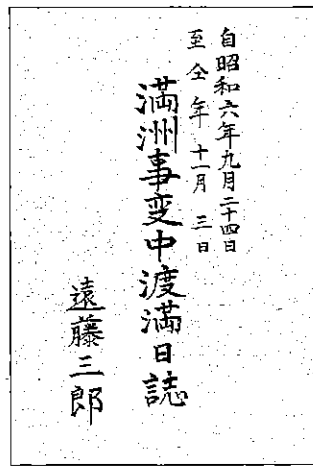 自昭和六年九月二十四日
至仝年十一月三日
満洲事変中渡満日誌
遠藤三郎